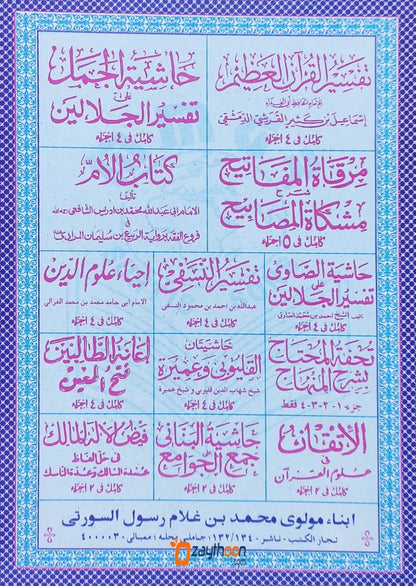 تفسير القرآن العظيم
للإمام الحافظ أبي الفداء
إسماعيل بن كثير القرشي الدمشقي
كامل في ٤ اجزاء
حاشية الجمل
على
تفسير الجلالين
كامل في ٤ اجزاء
مرقاة المفاتيح
شرح
مشكاة المصابيح
كامل في ١٥ اجزاء
كتاب الأم
تأليف
الامام ابي عبد الله محمد بن ادريس الشافعي
فروع الفقه برواية الربيع بن سليمان المرادي
كامل في ٤ اجزاء
حاشية الصاوي
على
تفسير الجلالين
كامل في ٤ اجزاء
تفسير النسفي
عبد الله بن احمد بن محمود النسفي
كامل في ٤ اجزاء
إحياء علوم الدين
الامام ابي حامد محمد بن محمد الغزالي
كامل في ٤ اجزاء
تحفة المحتاج
بشرح المنهاج
جزء ١-٢-٣-٤ فقط
حاشيتان
القليوبي وعميرة
شيخ شهاب الدين قليوبي و شيخ عميرة
كامل في ٤ اجزاء
إعانة الطالبين
فتح المعين
كامل في ٤ اجزاء
الإتقان
في
علوم القرآن
كامل في ٢ اجزاء
حاشية البناني
على
جمع الجوامع
كامل في ٢ اجزاء
فيض الإله المالك
في حل الفاظ
عمدة السالك وعدة الناسك
كامل في ٢ اجزاء
ابناء مولوي محمد بن غلام رسول السورتي
تجار الكتب - ناشر - ١٣٢/١٣٤ جاملي محله ؛ ممبائي - ٤٠٠٠٠٣
zaythoon
.com